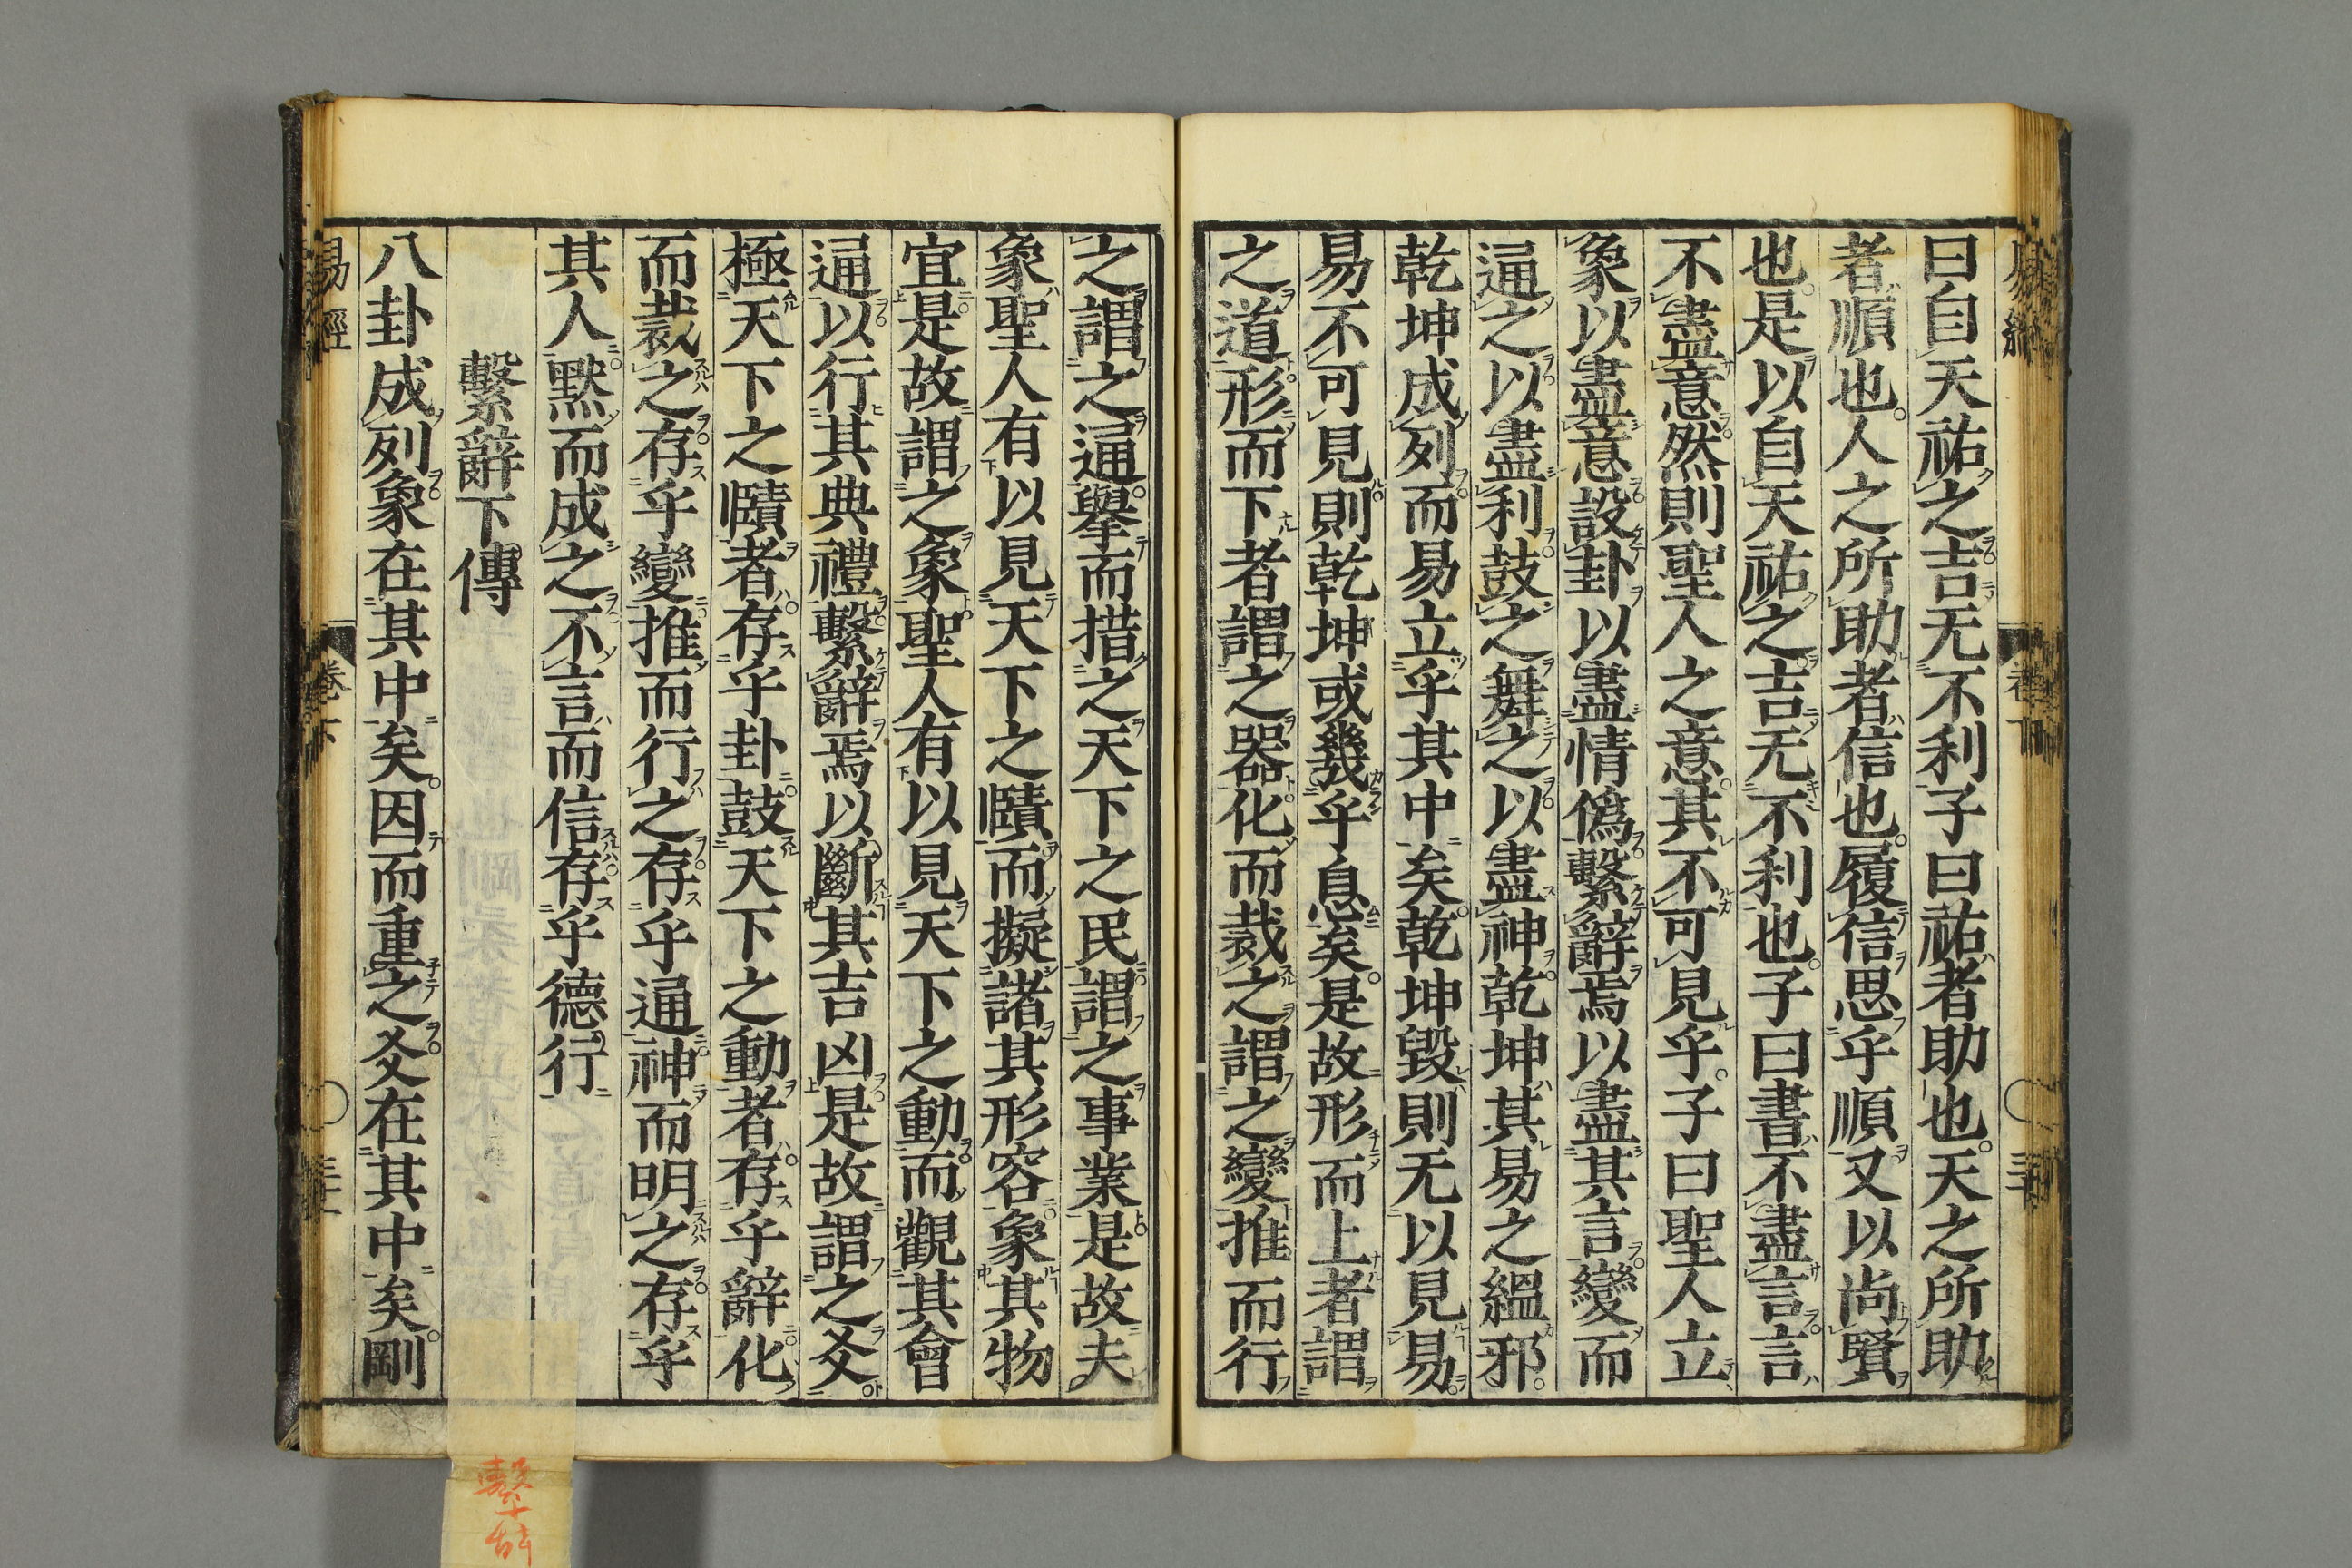 曰自天祐之吉无不利子曰祐者助也天之所助
者順也人之所助者信也履信思乎順又以尚賢
也是以自天祐之吉无不利也子曰書不盡言言
不盡意然則聖人之意其不可見乎子曰聖人立
象以盡意設卦以盡情僞繫辭焉以盡其言變而
通之以盡利鼓之舞之以盡神乾坤其易之縕邪
乾坤成列而易立乎其中矣乾坤毀則无以見易
易不可見則乾坤或幾乎息矣是故形而上者謂
之道形而下者謂之器化而裁之謂之變推而行
之謂之通擧而措之天下之民謂之事業是故夫
象聖人有以見天下之賾而擬諸其形容象其物
宜是故謂之象聖人有以見天下之動而觀其會
通以行其典禮繫辭焉以斷其吉凶是故謂之爻
極天下之賾者存乎卦鼓天下之動者存乎辭化
而裁之存乎變推而行之存乎通神而明之存乎
其人默而成之不言而信存乎德行
繫辭下傳
八卦成列象在其中矣因而重之爻在其中矣剛
易經 卷下